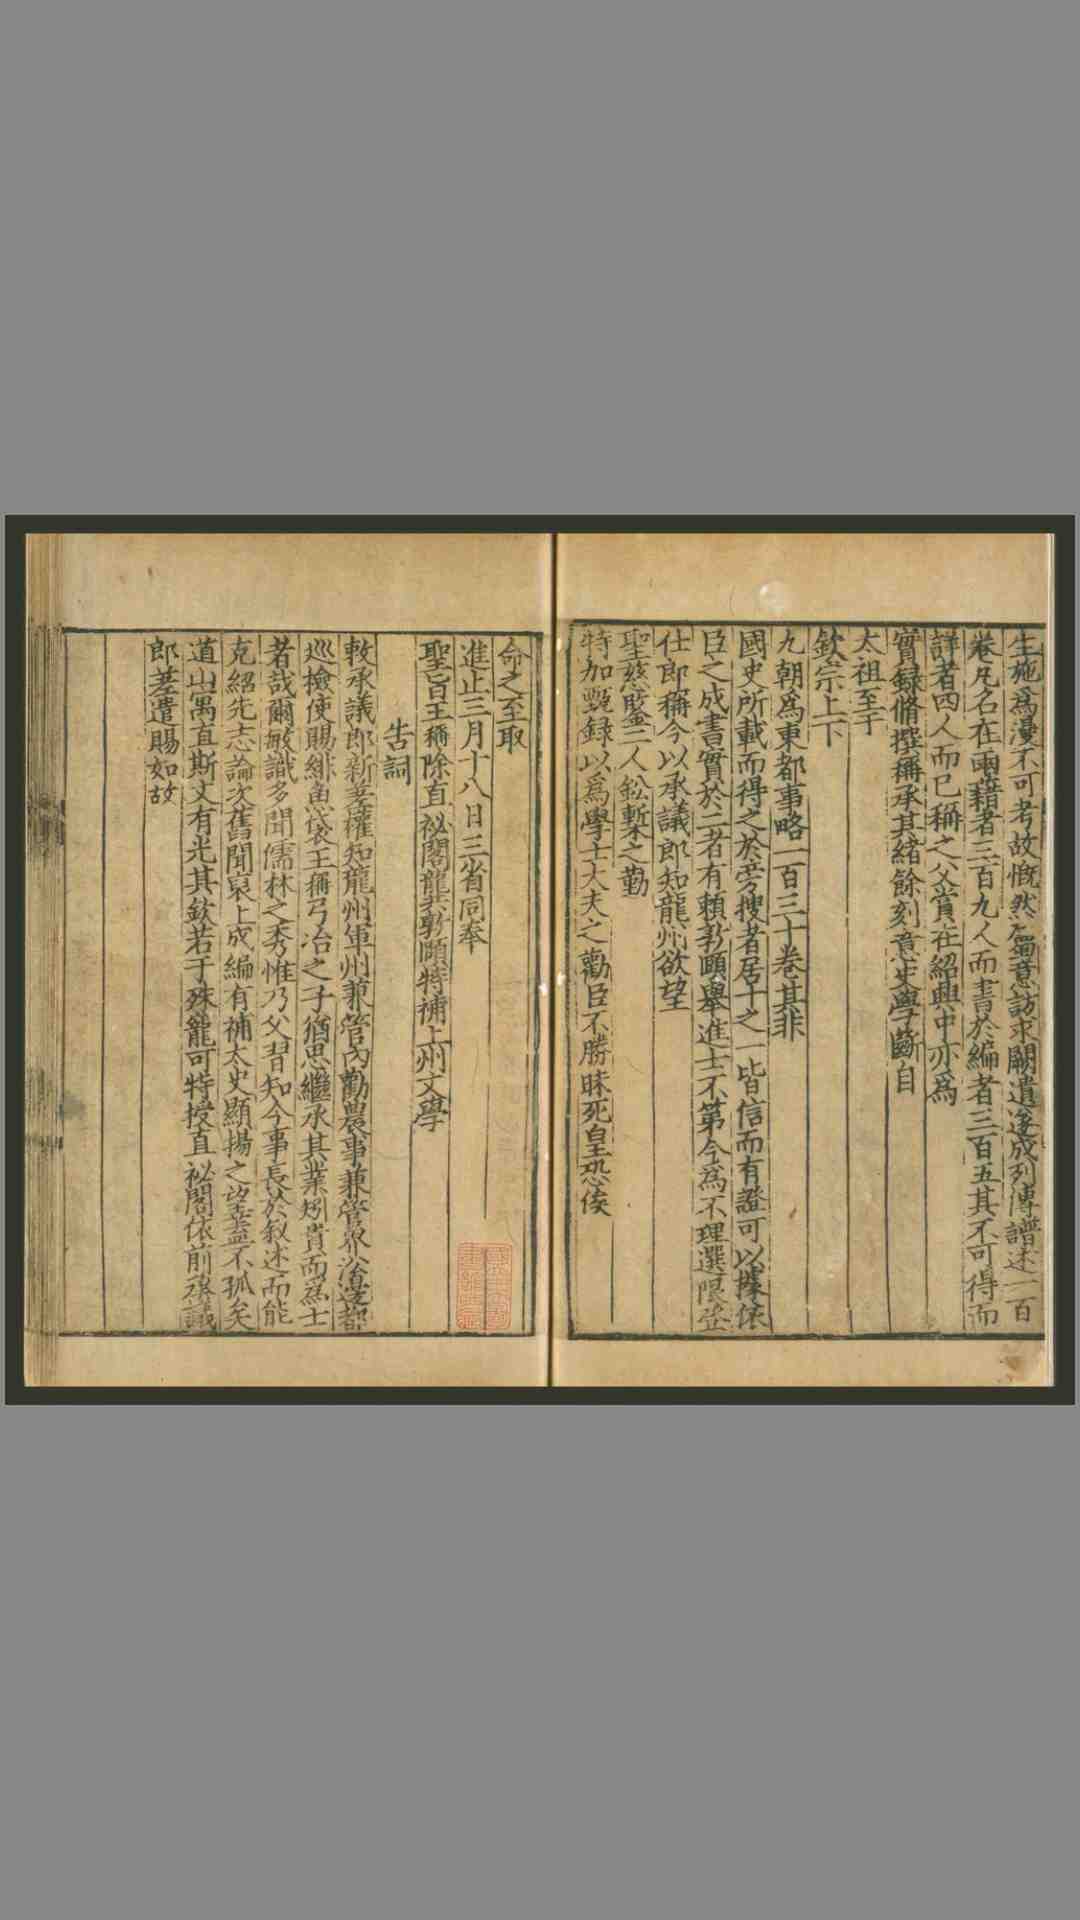 生施爲漫不可考故慨然篤意訪求闕遺遂成列傳譜述一百
卷凡名在兩籍者三百九人而書於編者三百五其不可得而
詳者四人而已稱之父賞在紹興中亦爲
實録脩撰稱承其緒餘刻意史學斷自
太祖至于
欽宗上下
九朝爲東都事略一百三十卷其非
國史所載而得之於旁搜者居十之一皆信而有證可以據依
臣之成書實於二者有賴敦頤舉進士不第今爲不理選限登
仕郎稱今以承議郎知龍州欲望
聖慈鑒二人鈆槧之勤
特加甄録以爲學士大夫之勸臣不勝昧死皇恐俟
命之至取
進止三月十八日三省同奉
聖旨王稱除直祕閣龔敦頤特補上州文學
告詞
敕承議郎新差權知龍州軍州兼管內勸農事兼管界沿邊都
巡檢使賜緋魚袋王稱弓冶之子猶思繼承其業矧貴而爲士
者哉爾敏識多聞儒林之秀惟乃父習知今事長於叙述而能
克紹先志論次舊聞裒上成編有補太史顯揚之望蓋不孤矣
道山寓直斯文有光其欽若于殊寵可特授直祕閣依前承議
郎差遣賜如故